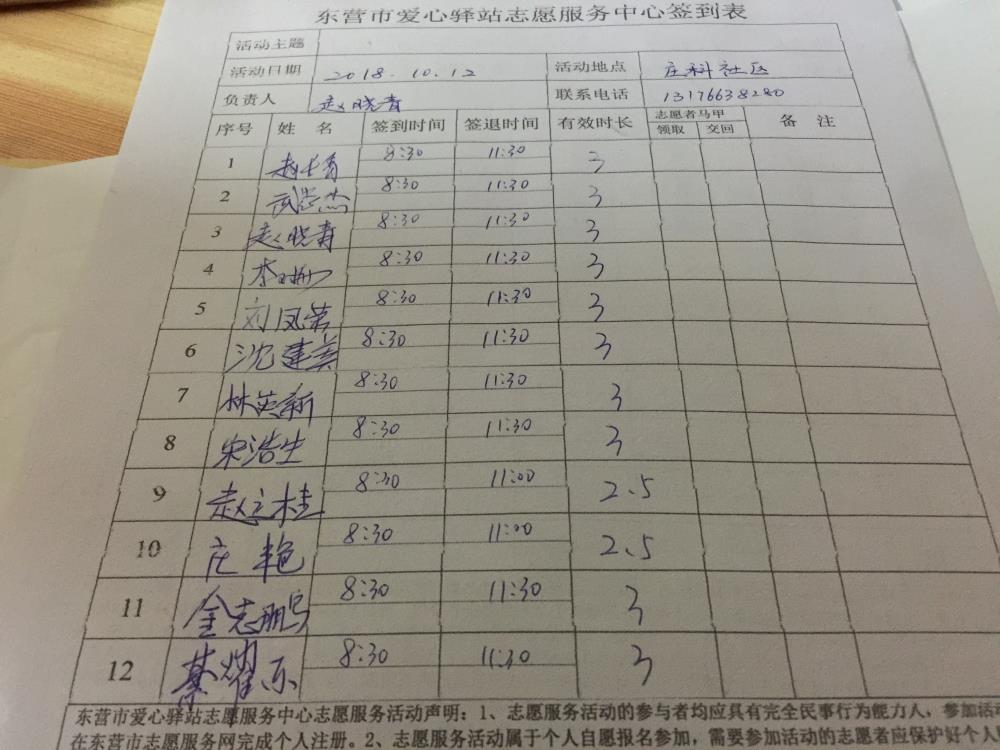 东营市爱心驿站志愿服务中心签到表
活动主题
活动日期 2018.10.12 活动地点 庄科社区
负责人 赵晓青 联系电话 13176638280
序号 姓 名 签到时间 签退时间 有效时长 志愿者马甲 备 注
领取 交回
1 8:30 11:30 3
2 武志杰 8:30 11:30 3
3 赵晓青 8:30 11:30 3
4 8:30 11:30 3
5 刘凤荣 8:30 11:30 3
6 沈建美 8:30 11:30 3
7 林英新 8:30 11:30 3
8 宋浩生 8:30 11:30 3
9 赵立桂 8:30 11:00 2.5
10 庄艳 8:30 11:00 2.5
11 金志鹏 8:30 11:30 3
12 綦耀东 8:30 11:30 3
东营市爱心驿站志愿服务中心志愿服务活动声明：1、志愿服务活动的参与者均应具有完全民事行为能力人，参加活动
在东营市志愿服务网完成个人注册。2、志愿服务活动属于个人自愿报名参加，需要参加活动的志愿者应保护好个人